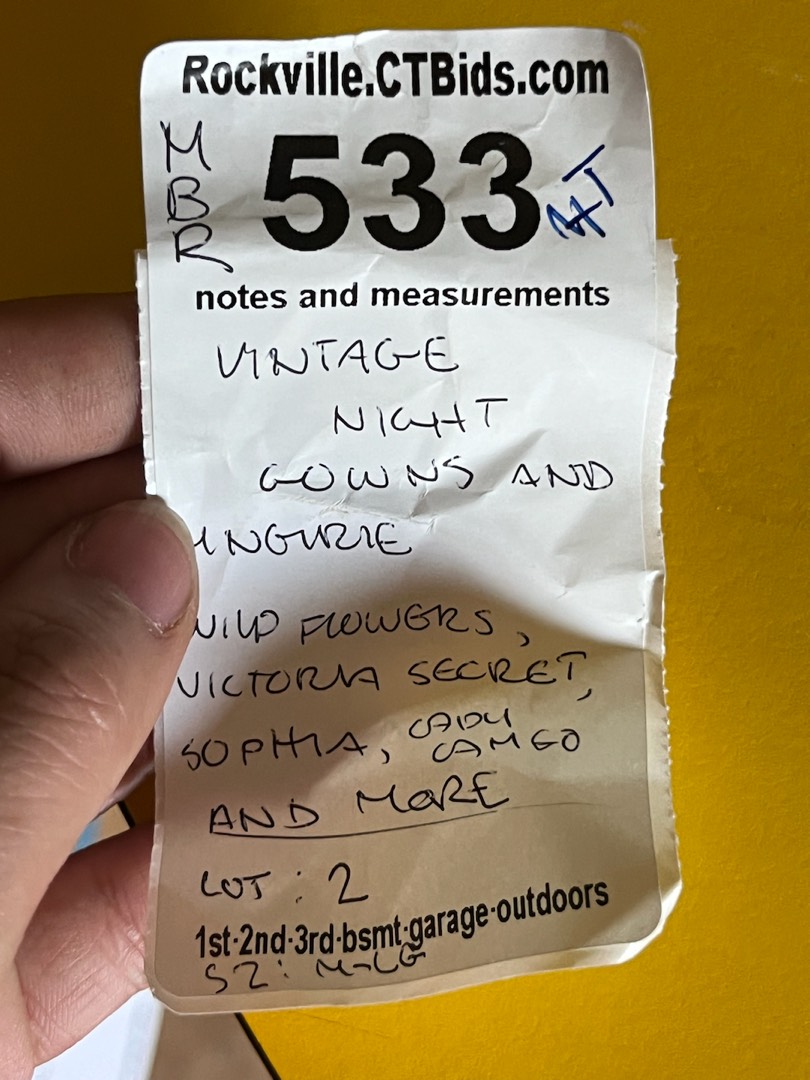 Rockville.CTBids.com
MBR
533
notes and measurements
VINTAGE
NIGHT
GOWNS AND
LINGURIE
WILD FLOWERS,
VICTORIA SECRET,
SOPHIA, LADY
CAMEO
AND MORE
LOT: 2
1st·2nd·3rd·bsmt·garage·outdoors
SZ: M-LG